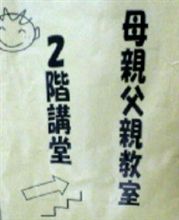 母親父親教室
2階講堂